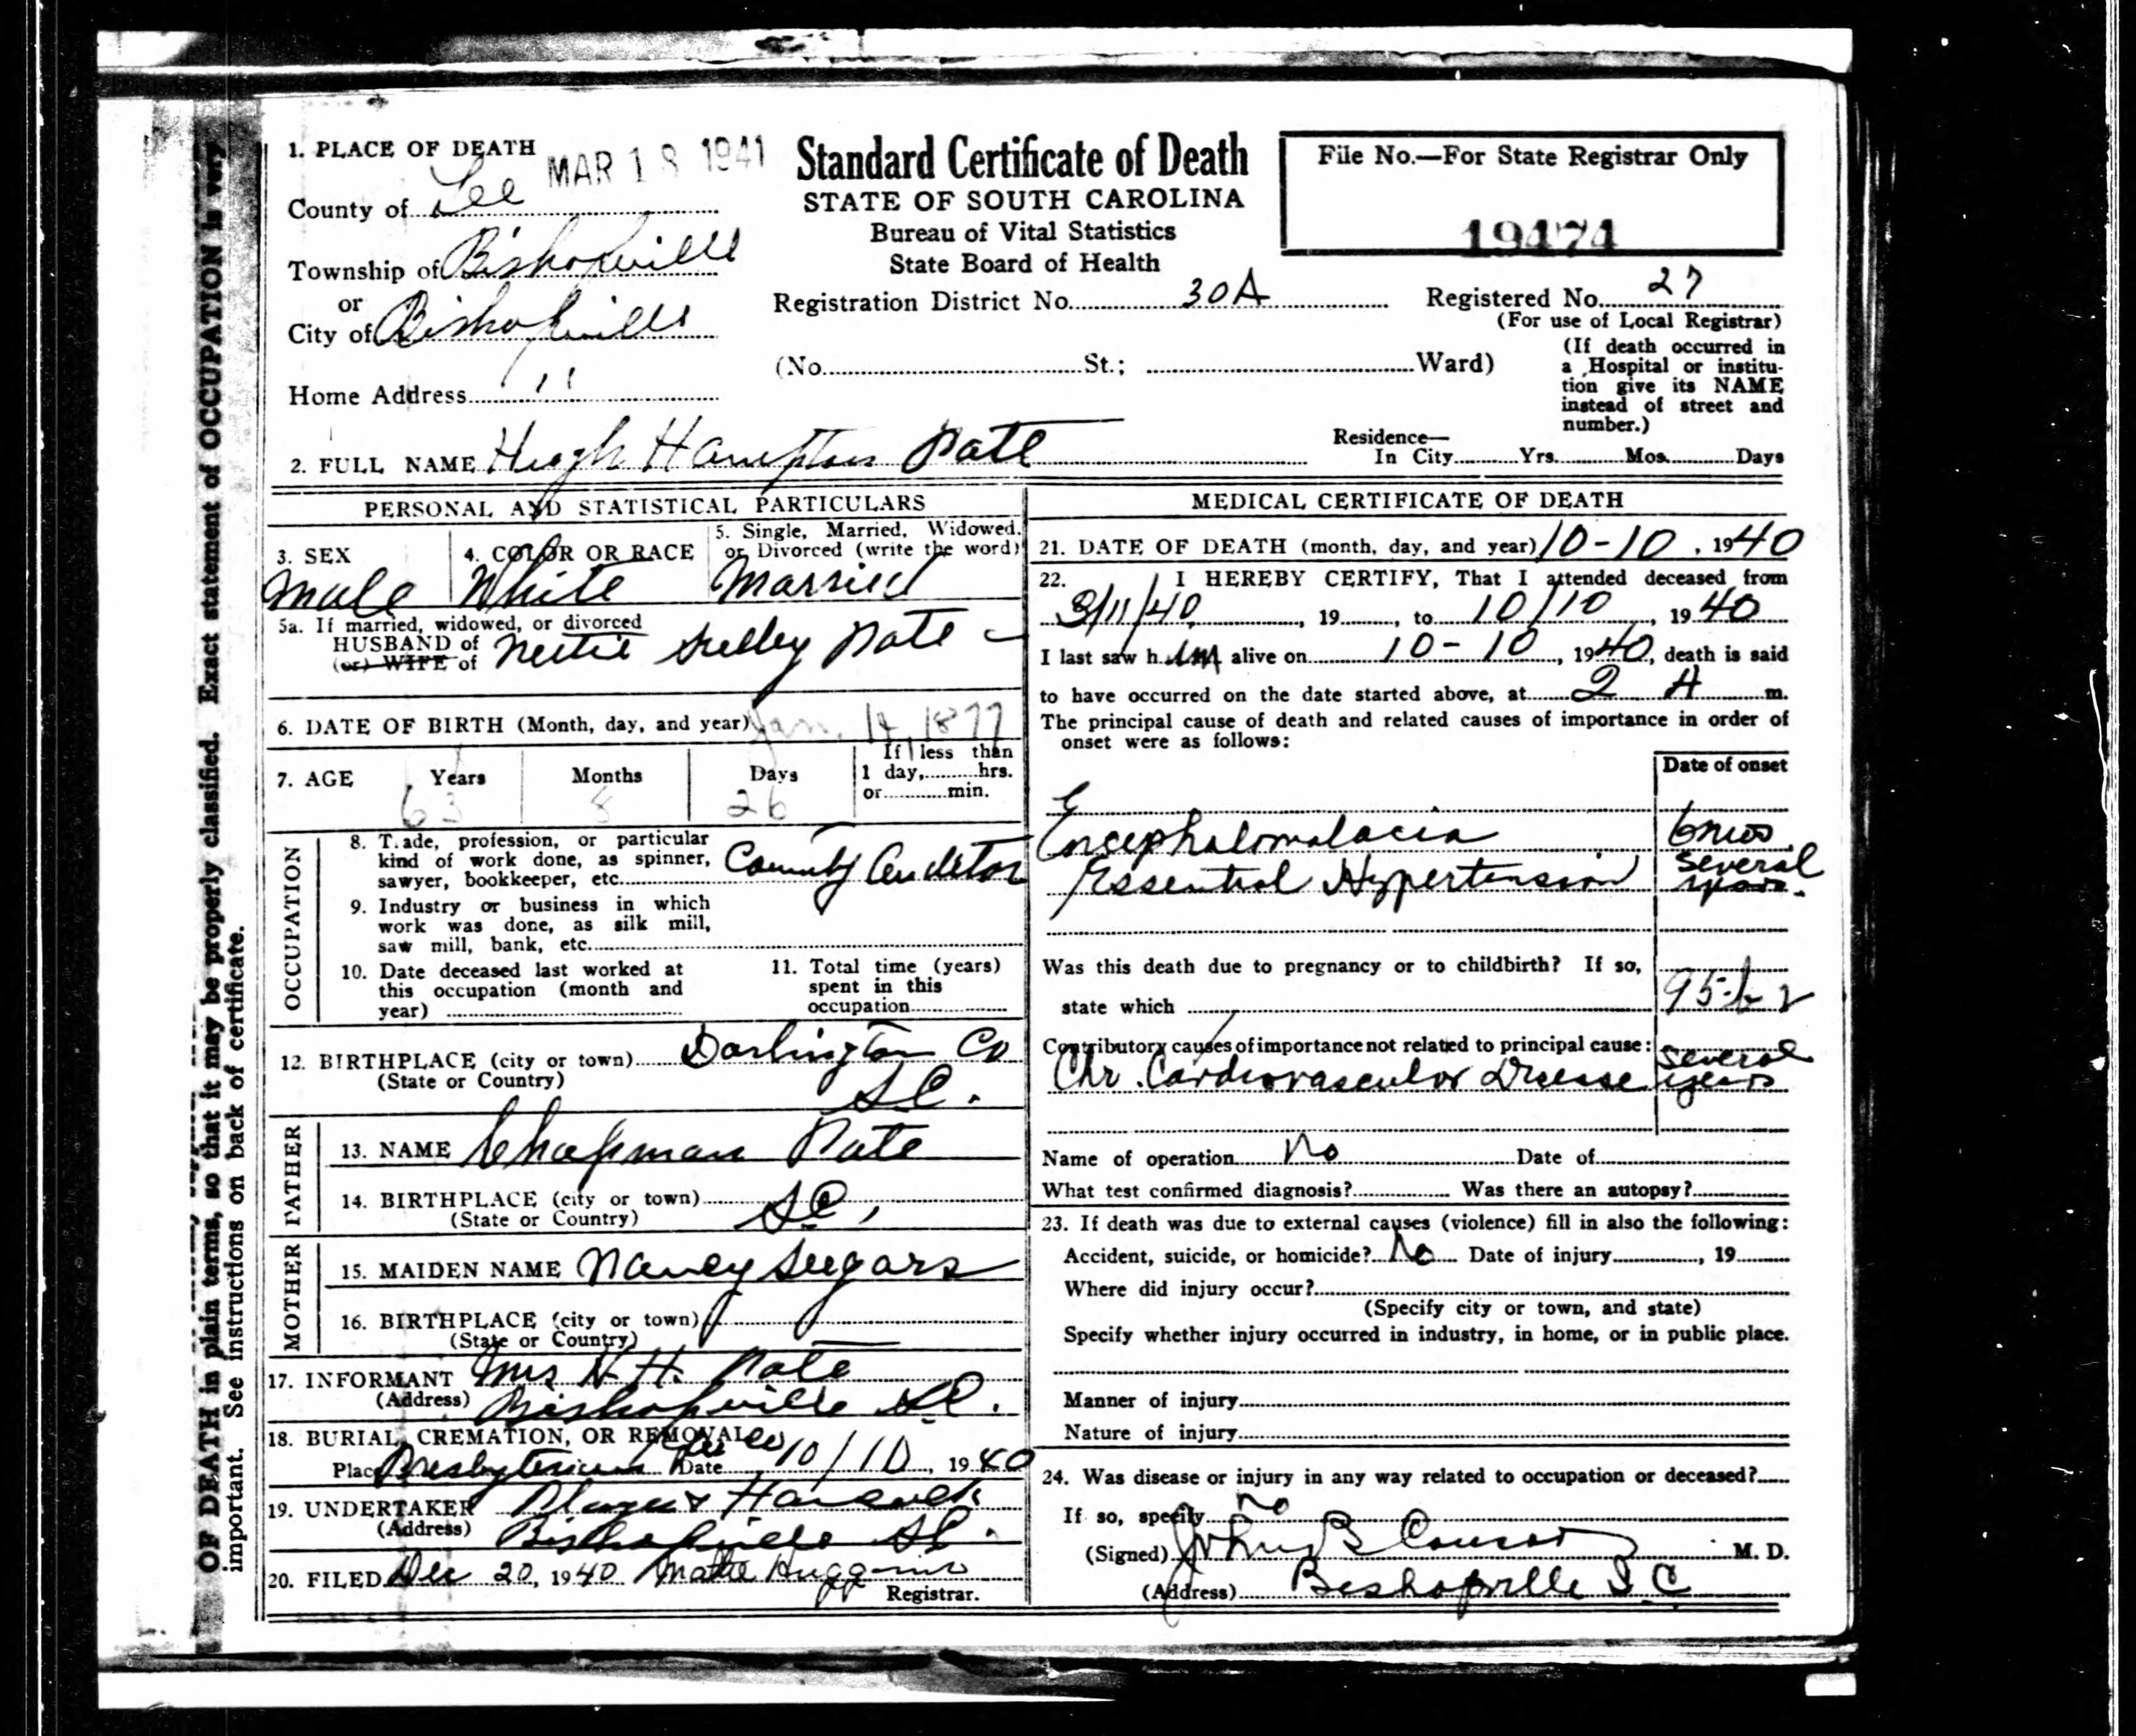 OF DEATH in plain terms, so that it may be properly classified. Exact statement of OCCUPATION is very
important. See instructions on back of certificate.
1. PLACE OF DEATH
MAR 18 1941
County of Lee
Township of Bishopville
or
City of Bishopville
Home Address " "
Standard Certificate of Death
STATE OF SOUTH CAROLINA
Bureau of Vital Statistics
State Board of Health
Registration District No. 30A
(No. St.; Ward)
File No.—For State Registrar Only
19474
Registered No. 27
(For use of Local Registrar)
(If death occurred in
a Hospital or institu-
tion give its NAME
instead of street and
number.)
2. FULL NAME Hugh Hampton Pate
Residence—
In City Yrs. Mos. Days
PERSONAL AND STATISTICAL PARTICULARS
3. SEX
Male
4. COLOR OR RACE
White
5. Single, Married, Widowed,
or Divorced (write the word)
Married
5a. If married, widowed, or divorced
HUSBAND of
(or) WIFE of
Nettie Pate
6. DATE OF BIRTH (Month, day, and year) Jan. 14, 1877
7. AGE Years Months Days
63 8 26
If less than
1 day, hrs.
or min.
OCCUPATION
8. Trade, profession, or particular
kind of work done, as spinner,
sawyer, bookkeeper, etc. County Auditor
9. Industry or business in which
work was done, as silk mill,
saw mill, bank, etc.
10. Date deceased last worked at
this occupation (month and
year)
11. Total time (years)
spent in this
occupation
12. BIRTHPLACE (city or town) Darlington Co
(State or Country) S.C.
FATHER
13. NAME Chapman Pate
14. BIRTHPLACE (city or town) S.C.
(State or Country)
MOTHER
15. MAIDEN NAME Nancy Seegars
16. BIRTHPLACE (city or town)
(State or Country)
17. INFORMANT Mrs H.H. Pate
(Address) Bishopville S.C.
18. BURIAL, CREMATION, OR REMOVAL
Place Presbyterian Date 10/10, 1940
19. UNDERTAKER Hancock
(Address) Bishopville S.C.
20. FILED Dec 20, 1940 Huggins
Registrar.
MEDICAL CERTIFICATE OF DEATH
21. DATE OF DEATH (month, day, and year) 10-10, 1940
22. I HEREBY CERTIFY, That I attended deceased from
3/11/40, 19 , to 10/10, 1940
I last saw him alive on 10-10, 1940, death is said
to have occurred on the date started above, at 2 A m.
The principal cause of death and related causes of importance in order of
onset were as follows:
Date of onset
Encephalomalacia 6 mos.
Essential Hypertension several years.
Was this death due to pregnancy or to childbirth? If so,
state which
Contributory causes of importance not related to principal cause:
Chr. Cardiovascular Disease several years
Name of operation No Date of
What test confirmed diagnosis? Was there an autopsy?
23. If death was due to external causes (violence) fill in also the following:
Accident, suicide, or homicide? No Date of injury , 19
Where did injury occur?
(Specify city or town, and state)
Specify whether injury occurred in industry, in home, or in public place.
Manner of injury
Nature of injury
24. Was disease or injury in any way related to occupation or deceased?
If so, specify no
(Signed) John B M. D.
(Address) Bishopville S C